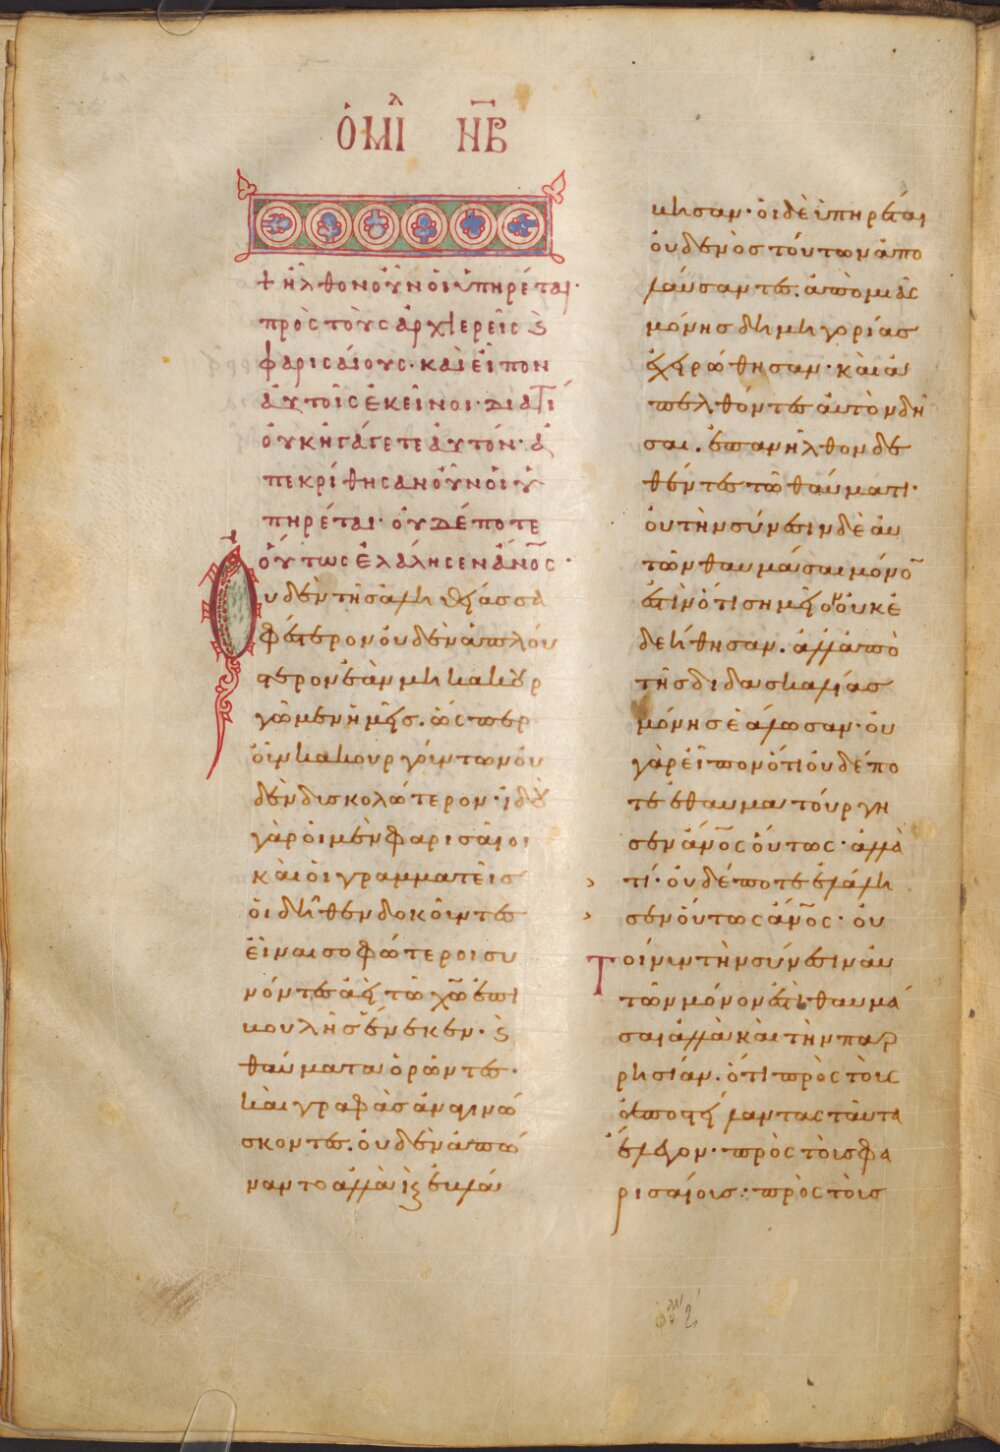 ὉΜΙΛ ΝΒ
+ ἦλθον οὖν οἱ ὑπηρέται·
πρὸς τοὺς ἀρχιερεῖς ϗ
φαρισαίους· καὶ εἶπον
αὐτοῖς ἐκεῖνοι· διατί
οὐκ ἠγάγετε αὐτόν· ἀ
πεκρίθησαν οὖν οἱ ὑ
πηρέται· οὐδέποτε
οὕτως ἐλάλησεν ἄν̅ο̅ς·
Οὐδὲν τῆς ἀληθείας σα
φέστερον οὐδὲν ἁπλού
στερον ἐὰν μὴ κακουρ
γῶμεν ἡμεῖς. ὥσπερ
οὖν κακουργούντων οὐ
δὲν δισκολώτερον· ἰδοὺ
γὰρ οἱ μὲν φαρισαῖοι
καὶ οἱ γραμματεῖς
οἱ δῆθεν δοκοῦντες
εἶναι σοφώτεροι συ
νόντες ἀεὶ τῶ χ̅ω̅ ἐπι
βουλῆς ἕνεκεν· ϗ
θαύματα ὁρῶντες·
καὶ γραφὰς ἀναγινώ
σκοντες. οὐδὲν ἀπώ
ναντο ἀλλὰ ϗ ἐβλά
βησαν· οἱ δὲ ὑπηρέται
οὐδενὸς τούτων ἀπο
λαύσαντες. ἀπὸ μιᾶς
μόνης δημηγορίας
ἐχειρώθησαν· καὶ ἀ
πελθόντες αὐτὸν δῆ
σαι. ἐπανῆλθον δε
θέντες τῶ θαύματι·
οὐ τὴν σύνεσιν δὲ αὐ
τῶν θαυμάσαι μόνον
ἐστὶν ὅτι σημείου οὐκ ἐ
δεήθησαν. ἀλλ' ἀπὸ
τῆς διδασκαλίας
μόνης ἑάλωσαν· οὐ
γὰρ εἶπον ὅτι οὐδέπο
τε ἐθαυματούργη
σεν ἄν̅ο̅ς οὕτως· ἀλλὰ
τί· οὐδέποτε ἐλάλη
σεν οὕτως ἄν̅ο̅ς· οὐ
Τοίνυν τὴν σύνεσιν αὐ
τῶν μόνον ἐστὶ θαυμά
σαι ἀλλὰ καὶ τὴν παρ
ρησίαν. ὅτι πρὸς τοὺς
ἀποστείλαντας ταῦτα
ἔλεγον· πρὸς τοῖς φα
ρισαίοις· πρὸς τοὶς